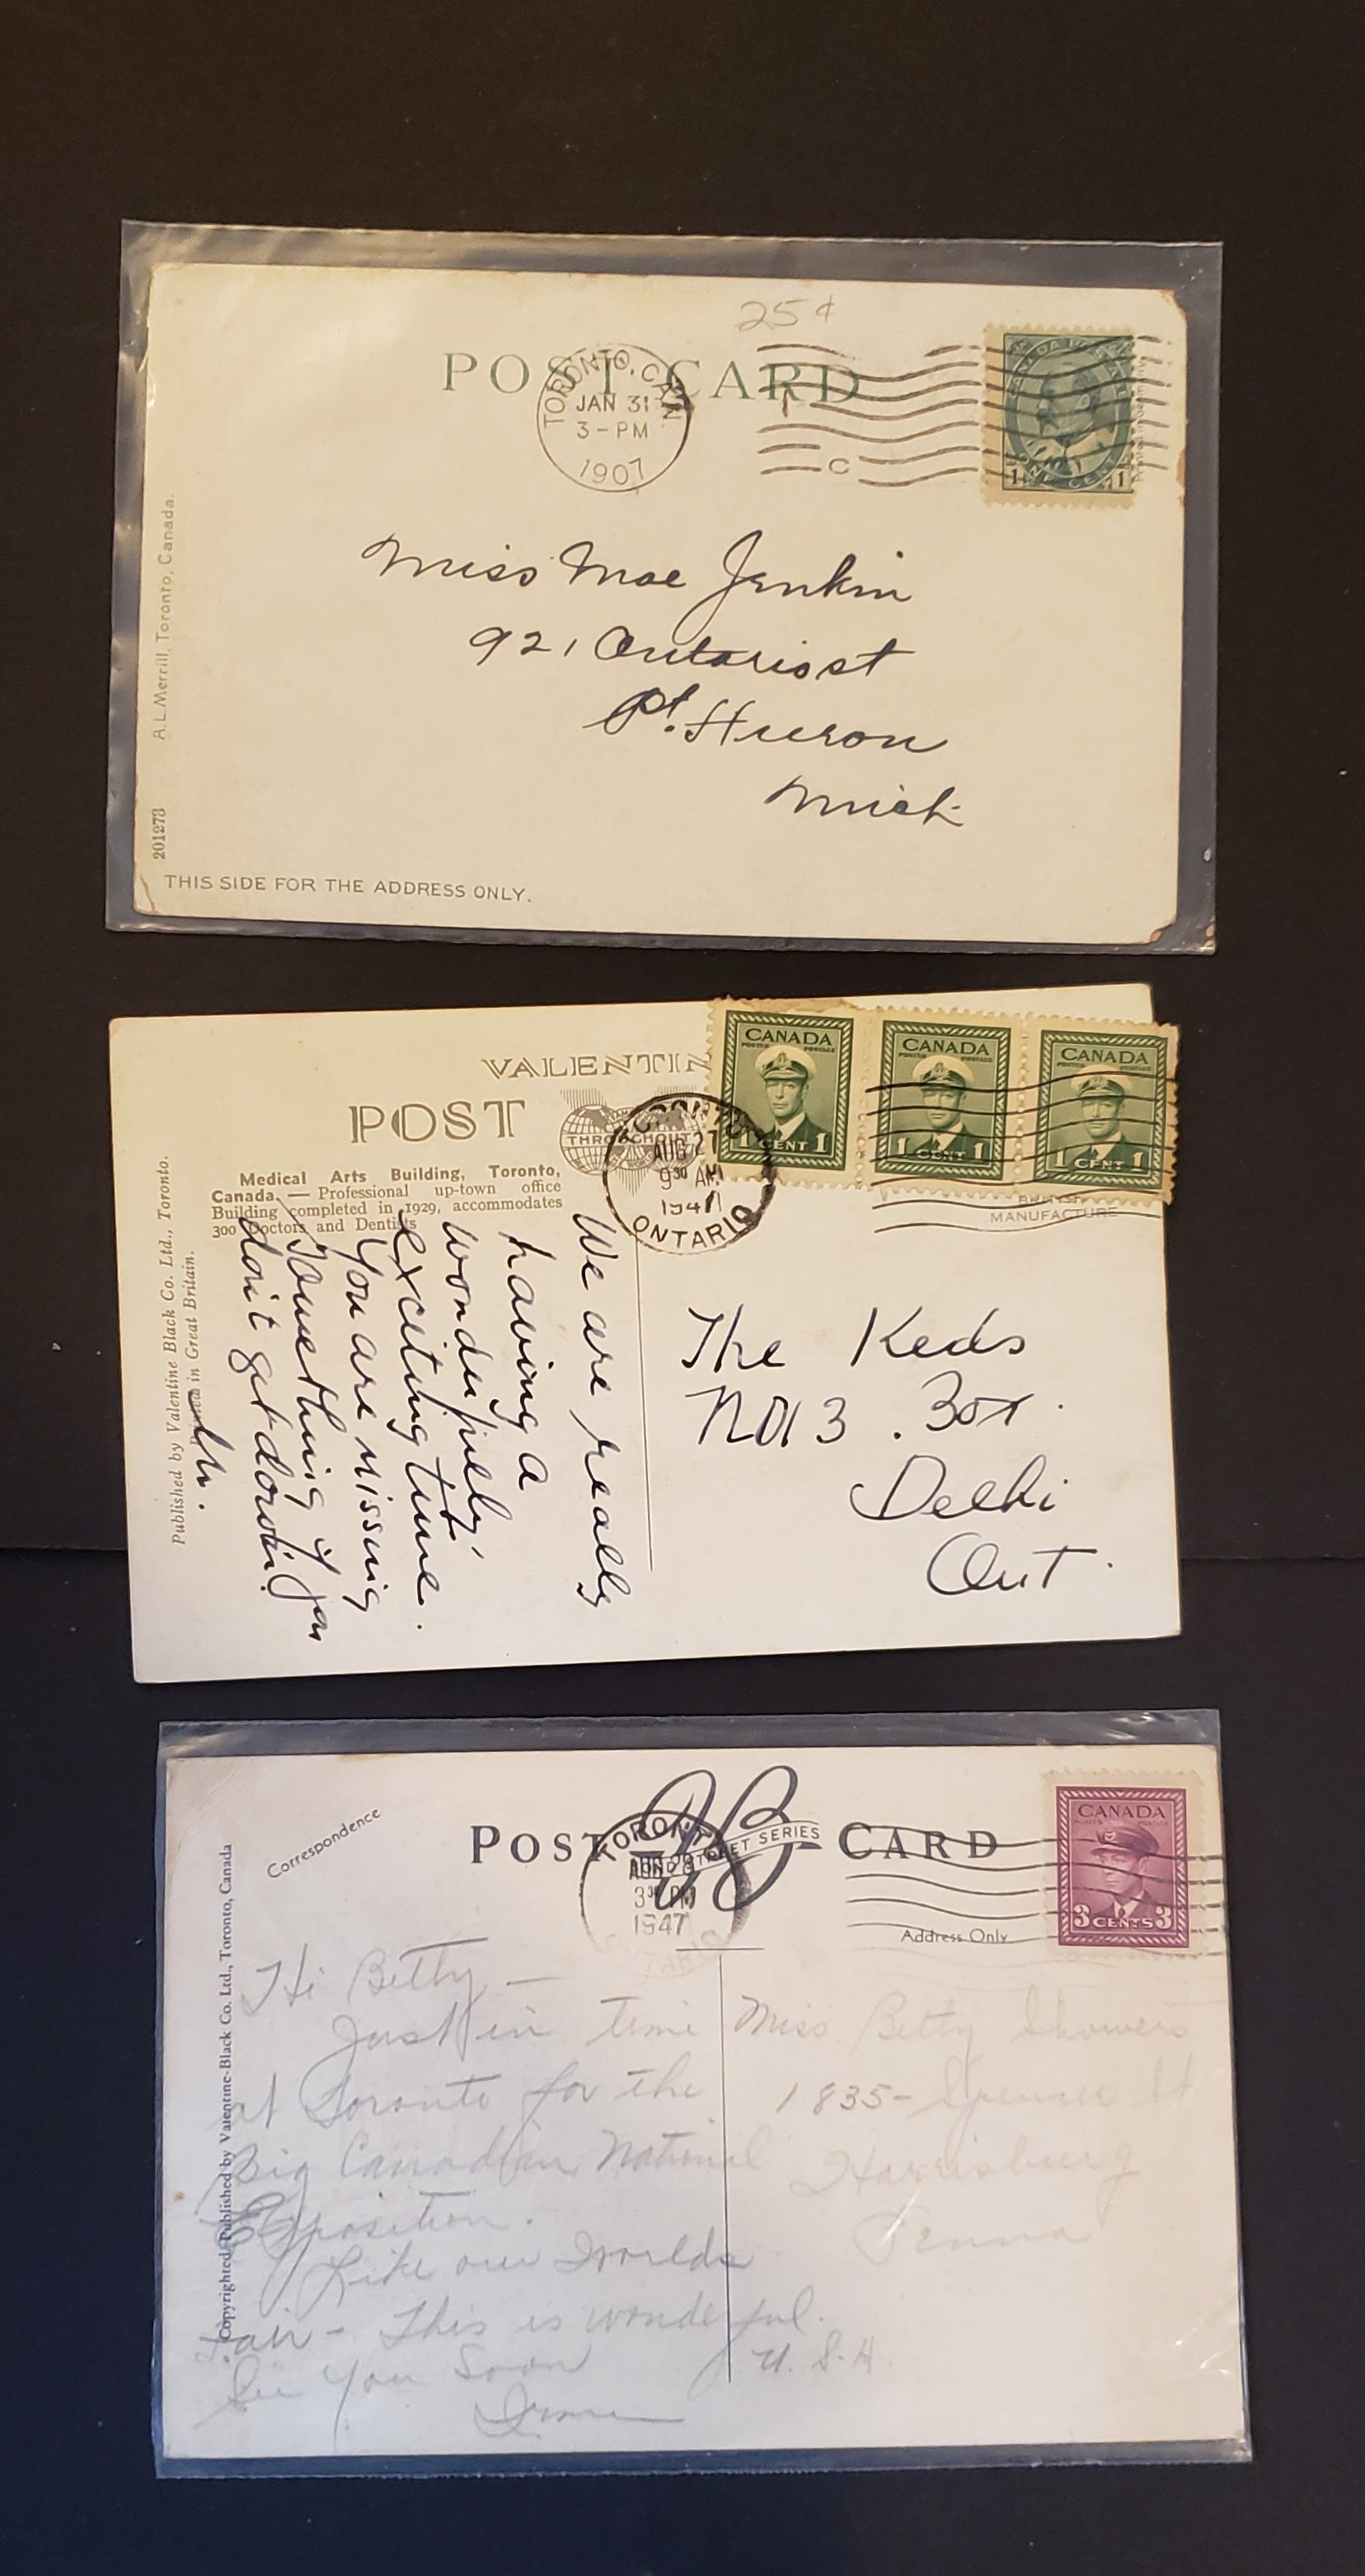 25¢
POST CARD
TORONTO, CAN.
JAN 31
3-PM
1907
C
CANADA POSTAGE
ONE CENT
1 1
Miss Mae Jenkin
921 Ontario st
Pt. Huron
Mich
A.L. Merrill, Toronto, Canada.
201273
THIS SIDE FOR THE ADDRESS ONLY.
VALENTIN
POST
THROUGHOUT
AUG 27
9 30 AM
ONTARIO
CANADA
POSTES POSTAGE
1 CENT 1
CANADA
POSTES POSTAGE
1 CENT 1
CANADA
POSTES POSTAGE
1 CENT 1
BRITISH
MANUFACTURE
Medical Arts Building, Toronto,
Canada. — Professional up-town office
Building completed in 1929, accommodates
300 Doctors and Dentists
Published by Valentine Black Co. Ltd., Toronto.
Printed in Great Britain.
We are really
having a
wonderfully
exciting time.
You are missing
something if you
don't get down!
The Keds
Box
Delhi
Ont
Correspondence
POST CARD
BOND STREET SERIES
TORONTO
3 30 PM
1947
ONTARIO
CANADA
POSTES POSTAGE
3 CENTS 3
Address Only
Copyrighted Published by Valentine-Black Co. Ltd., Toronto, Canada
Hi Betty —
Just in time
at Toronto for the
Big Canadian National
Exposition.
Like our Worlds
Fair - This is wonderful.
See You Soon
Miss Betty Showers
1835- Spencer St
Harrisburg
Penna
U.S.A